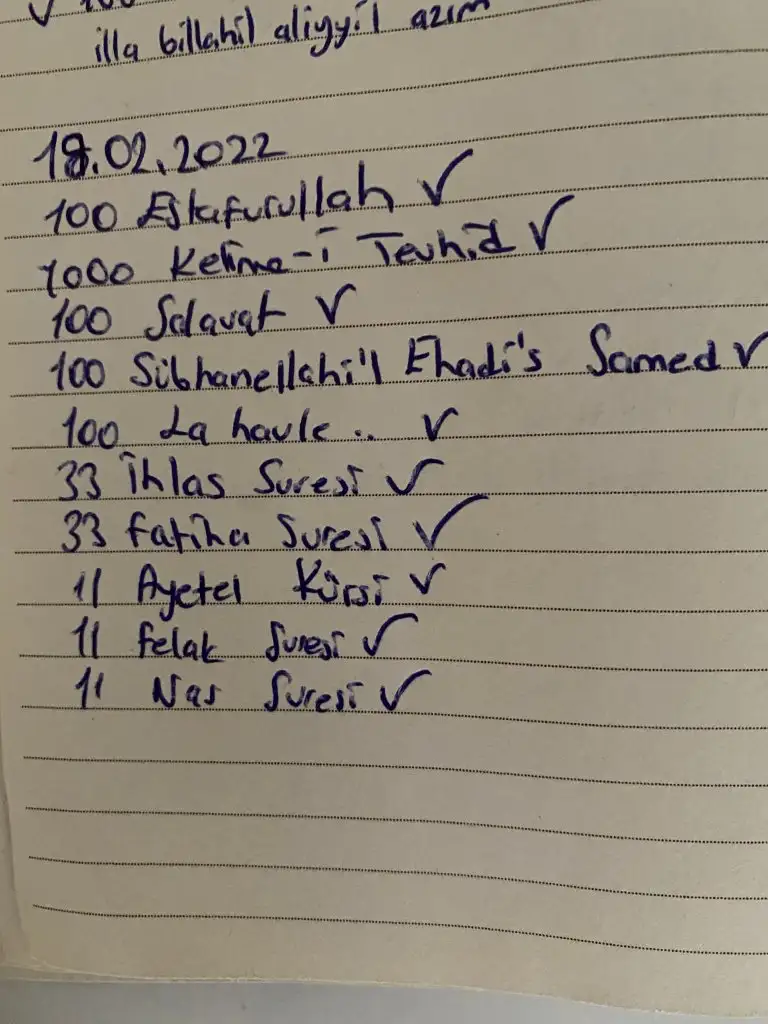 ✓ 100
illa billahil aliyyil azım
18.02.2022
100 Estafurullah ✓
1000 Kelime-i Tevhid ✓
100 Salavat ✓
100 Sübhanellahi'l Ehadi's Samed ✓
100 La havle.. ✓
33 İhlas Suresi ✓
33 Fatiha Suresi ✓
11 Ayetel Kürsi ✓
11 Felak Suresi ✓
11 Nas Suresi ✓